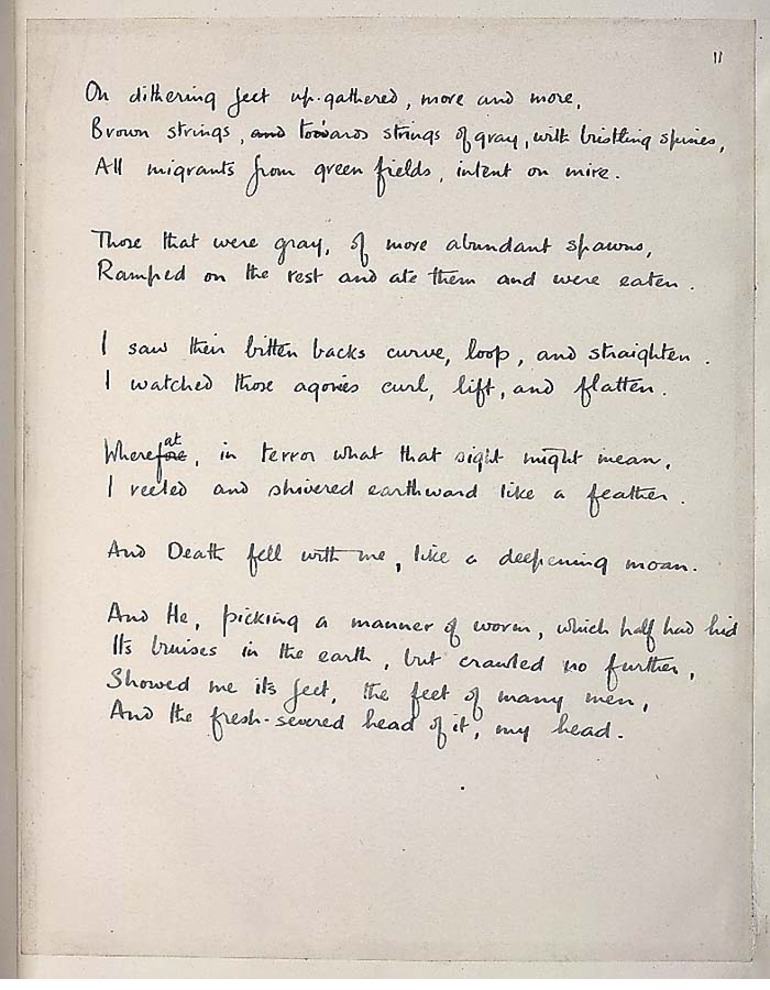 11
On dithering feet up-gathered, more and more,
Brown strings, and towards strings of gray, with bristling spines,
All migrants from green fields, intent on mire.
Those that were gray, of more abundant spawns,
Ramped on the rest and ate them and were eaten.
I saw their bitten backs curve, loop, and straighten.
I watched those agonies curl, lift, and flatten.
Wherefore at, in terror what that sight might mean,
I reeled and shivered earthward like a feather.
And Death fell with me, like a deepening moan.
And He, picking a manner of worm, which half had hid
Its bruises in the earth, but crawled no further,
Showed me its feet, the feet of many men,
And the fresh-severed head of it, my head.